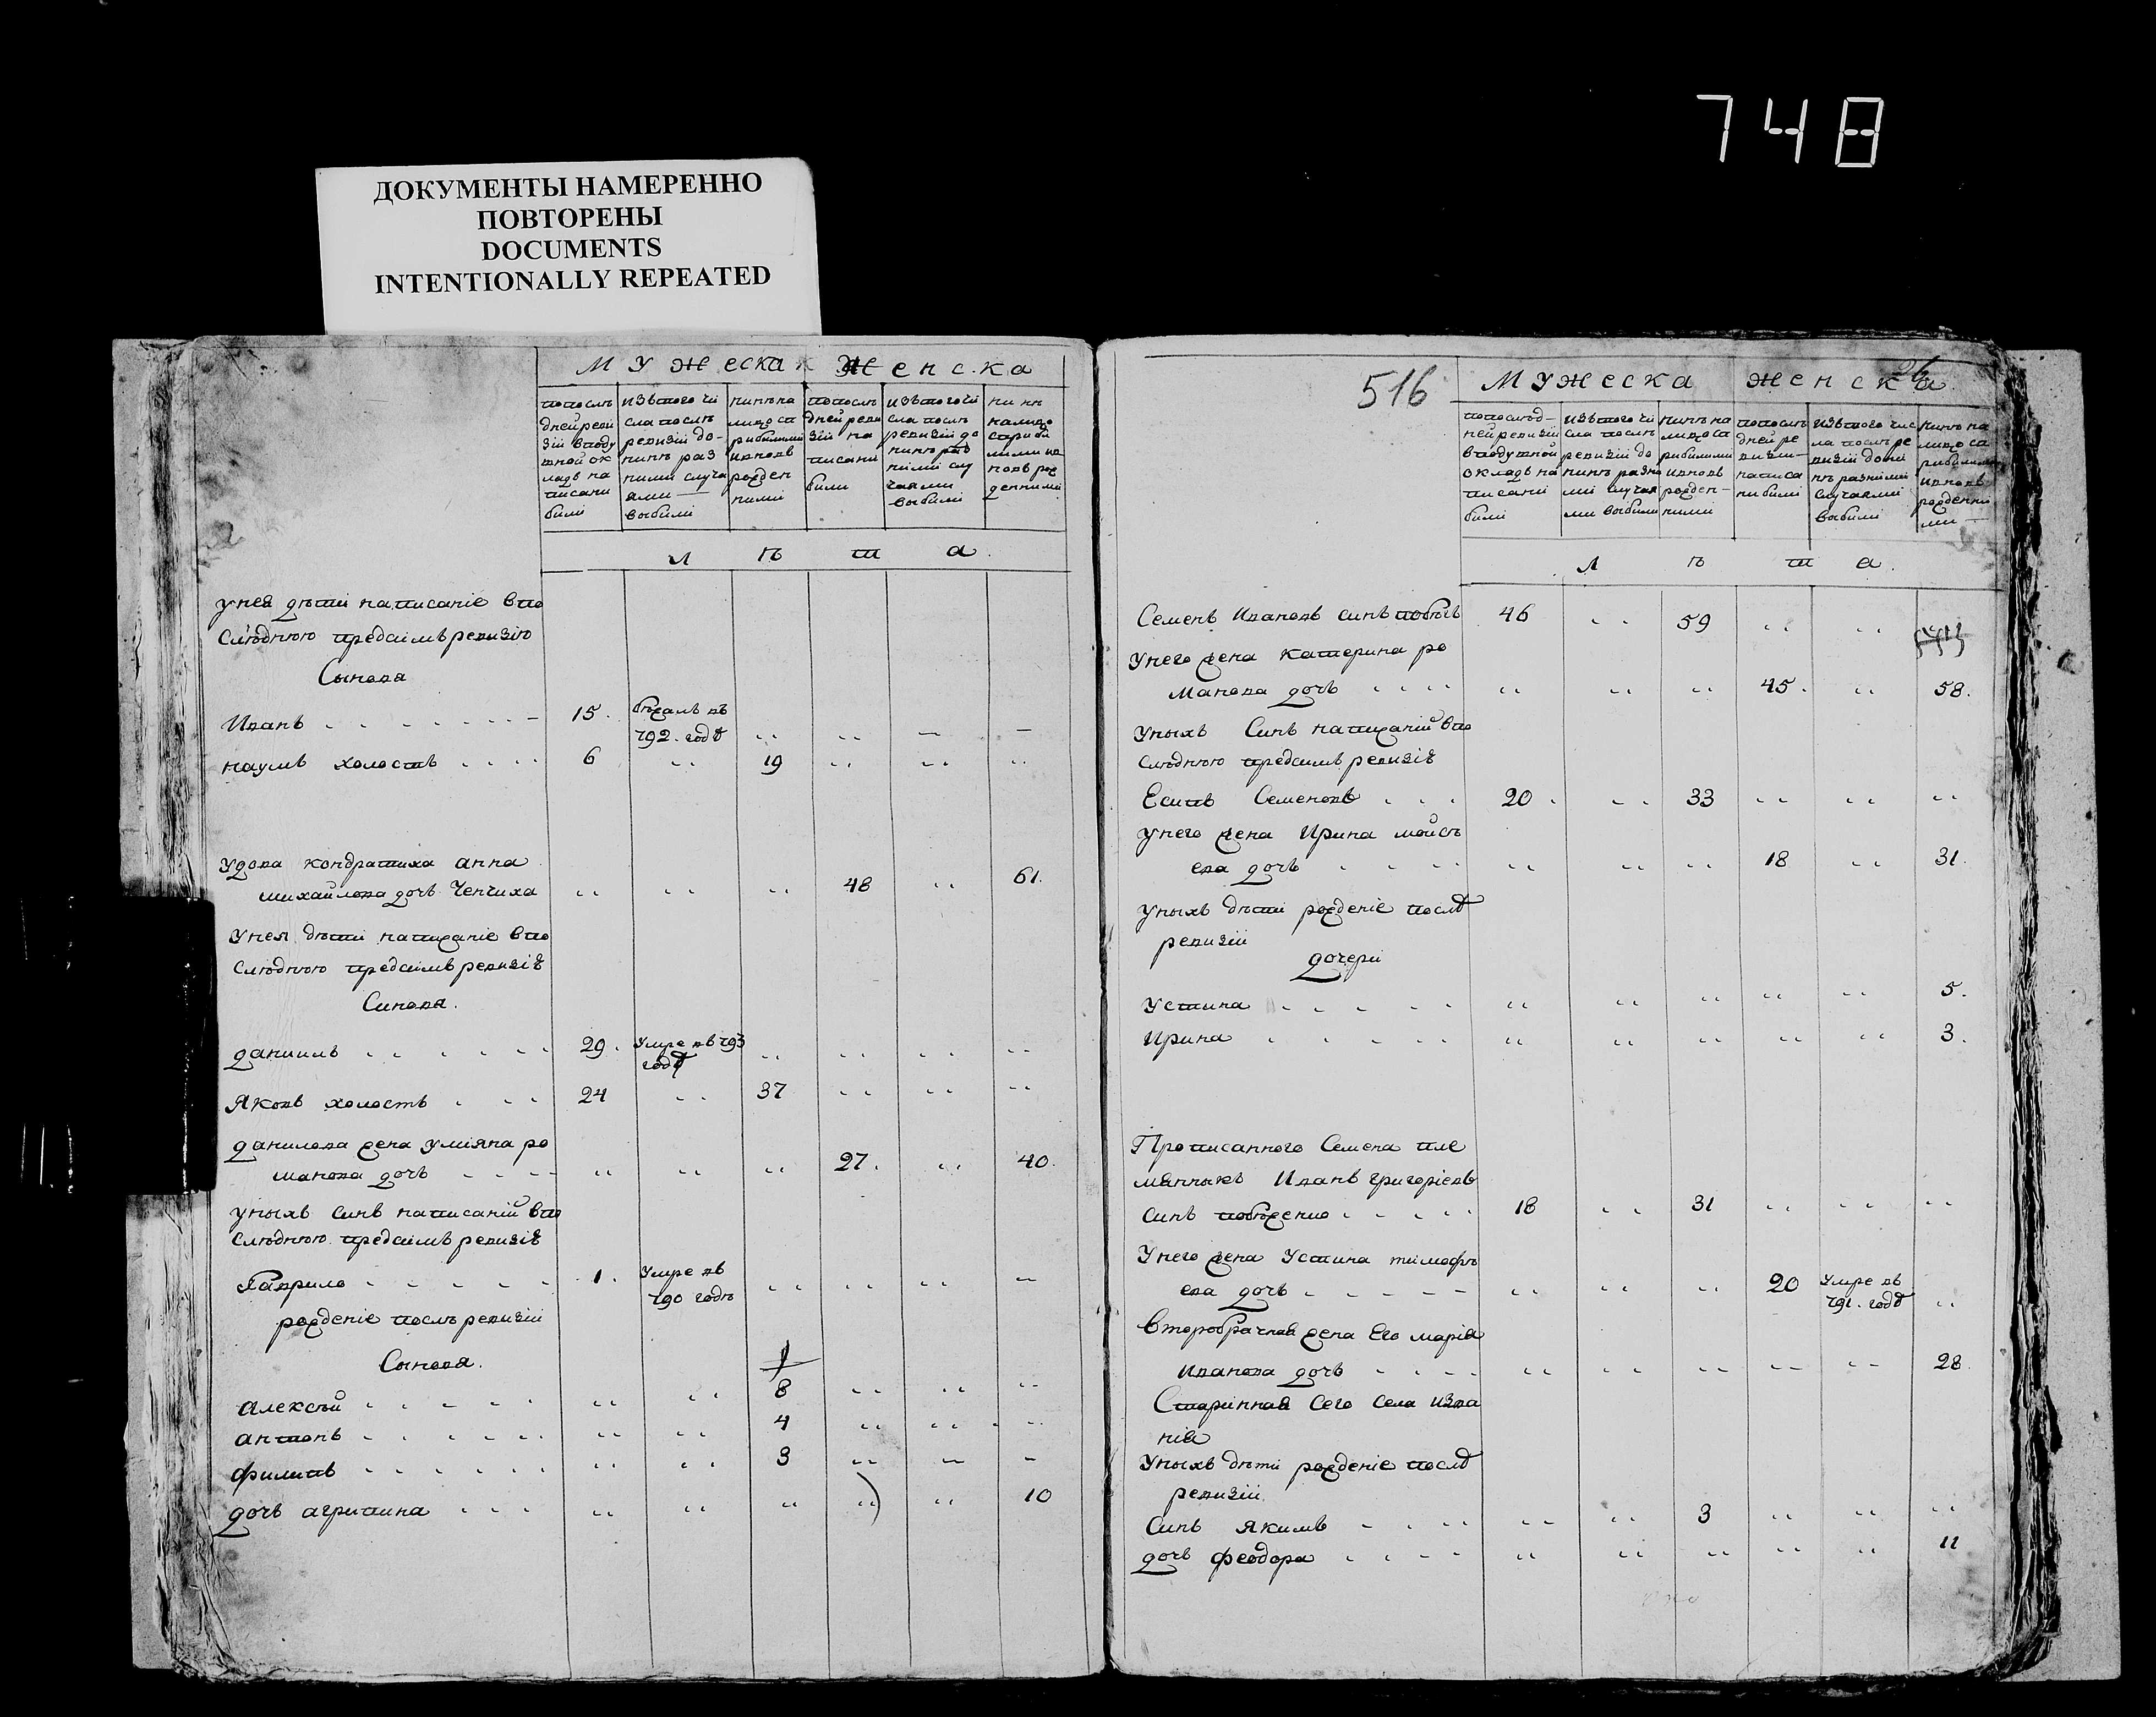 748
ДОКУМЕНТЫ НАМЕРЕННО
ПОВТОРЕНЫ
DOCUMENTS
INTENTIONALLY REPEATED
Мужеска Женска
попослѣ дней ревизіи вподушной окладъ написани били
изътого числа послѣ ревизіи до нинѣ разними случаями вибили
нинѣ на лицо сприбилими ивновь рожденними
попослѣ дней ревизіи написани били
изътого числа послѣ ревизіи до нинѣ разними случаями вибили
нинѣ налицо сприбилими ивновь рожденними
лѣта
унея дѣти написаніе впо
слѣднюю предсимъ ревизію
Сыновя
Иванъ 15. бѣжалъ въ
792. годѣ
наумъ холостъ 6 19
Удова кондратиха анна
михайлова дочь Ченчиха 48 61.
Унея дѣти написаніе впо
слѣднюю предсимъ ревизію
Синовя.
даниилъ 29. Умре въ 793
годѣ
Яковъ холостъ 24 37
данилова жена уліяна ро
манова дочь 27. 40.
унихъ синъ написаній впо
слѣднюю предсимъ ревизію
Гаврило 1. Умре въ
790 годѣ
рожденіе послѣ ревизіи
Сыновя.
алексѣй 8
антонъ 4
филипъ 3
дочь агрипина 10
516
26
Мужеска женска
попослѣдней ревизіи вподушной окладъ написани били
изътого числа послѣ ревизіи до нинѣ разними случаями вибили
нинѣ на лицо сприбилими ивновь рожденними
попослѣдней ревизіи написани били
изътого числа послѣ ревизіи донинѣ разними случаями вибили
нинѣ на лицо сприбилими ивновь рожденними
лѣта.
Семенъ Ивановъ синъ 46 59
Унего жена катерина ро
манова дочь 45. 58.
Унихъ Синъ написаній впо
слѣднюю предсимъ ревизію
Есипъ Семеновъ 20. 33
унего жена Ирина мойсѣ
ева дочь 18 31.
унихъ дѣти рожденіе послѣ
ревизіи
дочери
Устина 5.
Ирина 3.
Прописанного Семена пле
мянникъ Иванъ григоріевъ
синъ 18 31
Унего жена Устина тимофѣ
ева дочь 20 Умре въ
791. годѣ
второбрачная жена Его марія
Иванова дочь 28.
Старинная Сего Села
Унихъ дѣти рожденіе послѣ
ревизіи
Синъ якимъ 3
дочь феодора 11